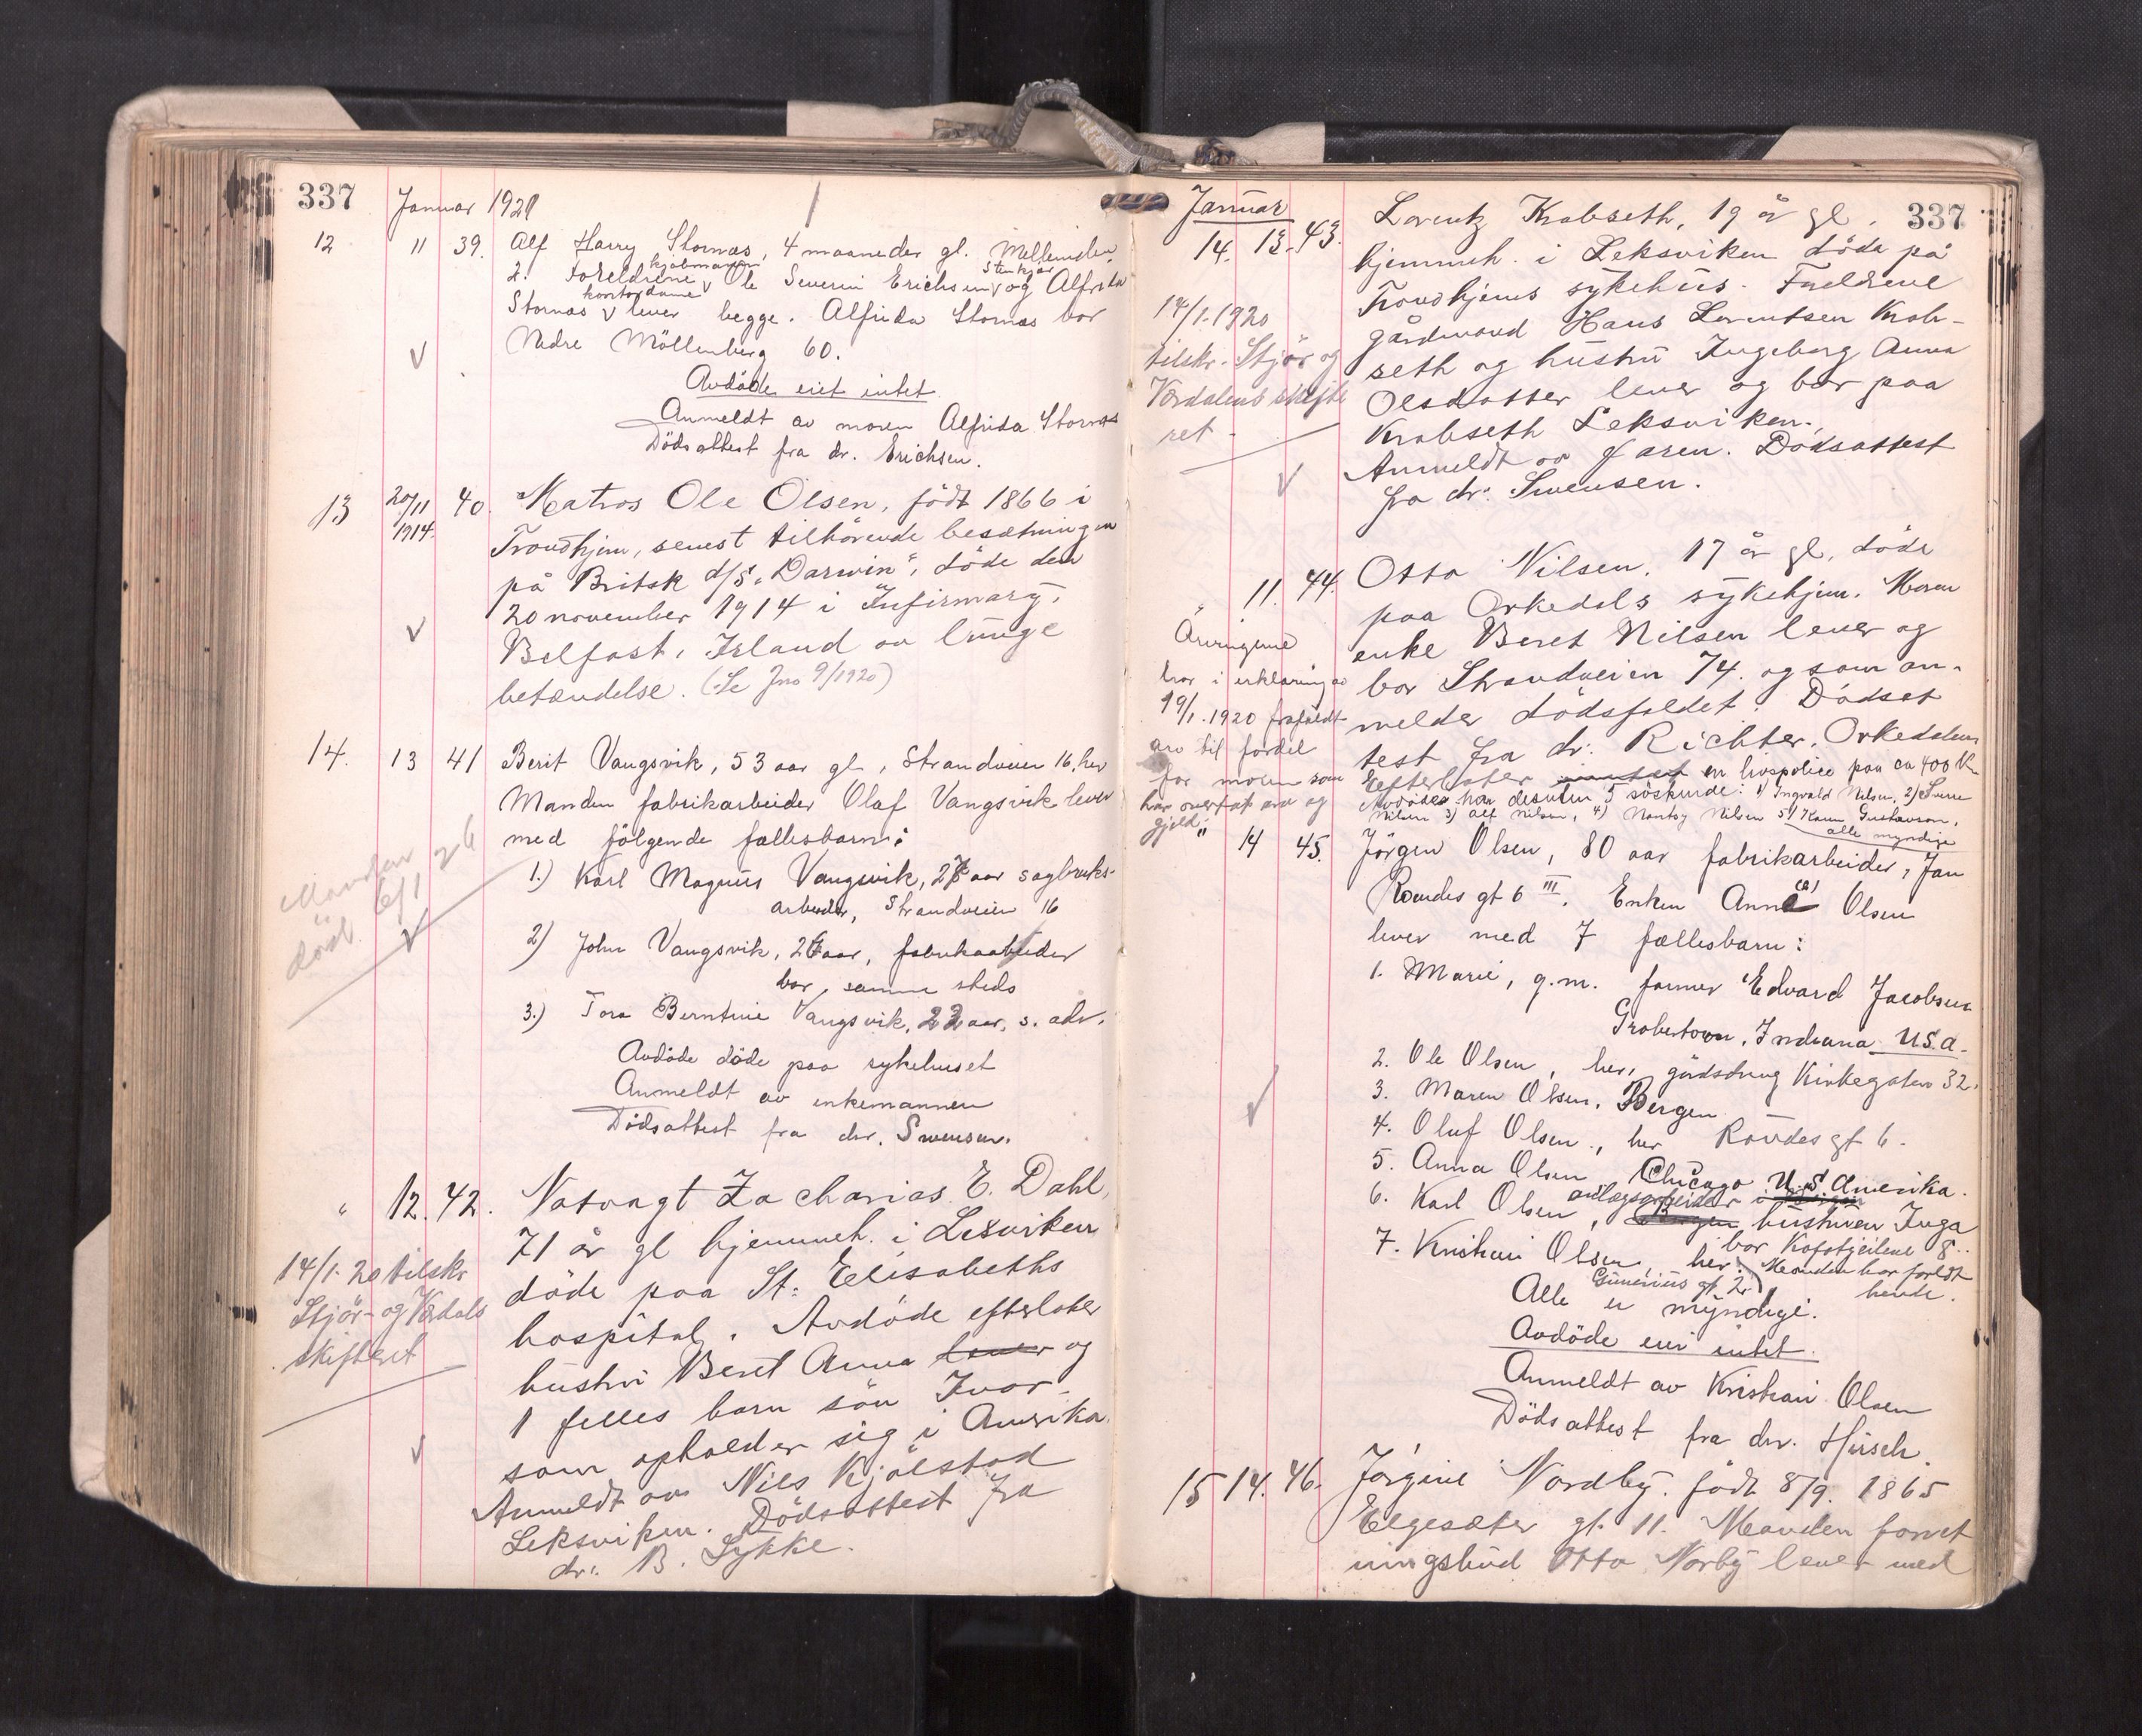 337
Januar 1920
12 11 39. Alf Harry Stornæs, 4 maaneder gl. Mellemila
2. Foreldrene kjøbmann Ole Severin Erichsen Stenkjær og Alfrida
Stornæs kontordame lever begge. Alfrida Stornæs bor
Nedre Möllenberg 60.
Avdöde eiet intet
Anmeldt av moren Alfrida Stornæs
Dödsattest fra dr. Erichsen.
13 20/11 1914. 40. Matros Ole Olsen, födt 1866 i
Trondhjem, senest tilhörende besætningen
på Britsk d/s "Darwin", döde den
20 november 1914 i Infirmary,
Belfast, Irland av lunge
betændelse. (Se Jno 9/1920)
14. 13 41 Berit Vangsvik, 53 aar gl, Strandveien 16, her
Manden fabrikarbeider Olaf Vangsvik lever
med fölgende fællesbarn:
1.) Karl Magnus Vangsvik, 27 aar sagbruks-
arbeider, Strandveien 16
2) John Vangsvik, 26 aar, fabrikarbeider
bor samme steds
3.) Tora Berntine Vangsvik, 22 aar, s. adr.
Avdöde döde paa sykehuset
Anmeldt av enkemannen
Dödsattest fra dr. Swensen.
Manden
död 6/1 26
" 12. 42. Natvagt Zacharias E. Dahl,
71 år gl hjemmeh. i Lexviken
döde paa St. Elisabeths
hospital. Avdöde efterlater
hustru Beret Anna lever og
1 felles barn sön Ivar
som opholder sig i Amerika.
Anmeldt av Nils Kjölstad
Leksviken. Dödsattest fra
dr. B. Lykke.
14/1. 20 tilskr
Stjör- og Værdals
skifteret
337
Januar
14. 13. 43. Lorentz Krabseth, 19 år gl.
hjemmeh. i Leksviken döde på
Trondhjems sykehus. Foreldrene
gårdmand Hans Lorentsen Krab-
seth og hustru Ingeborg Anna
Olsdatter lever og bor paa
Krabseth Leksviken.
Anmeldt av faren. Dödsattest
fra dr. Swensen.
14/1. 1920
tilskr. Stjör og
Værdalens skifte
ret
" 11. 44. Otto Nilsen, 17 år gl, döde
paa Orkedals sykehjem. Moren
enke Beret Nilsen lever og
bor Strandveien 74. og som an-
melder dödsfaldet. Dödsat
test fra dr. Richter, Orkedalen
Efterlater en livspolice paa ca 400 Kr
Avdöde har desuten 5 söskende: 1) Ingvald Nilsen, 2) Sverre
Nilsen 3) Alf Nilsen, 4) Nansy Nilsen 5) Gustavson,
alle myndige
Arvingerne
har i erklæring av
19/1. 1920 frafaldt
arv til fordel
for moren som
har overtat arv og
gjeld.
" 14 45. Jörgen Olsen, 80 aar fabrikarbeider, Jan
Roudes gt 6 III. Enken Anne Olsen
lever med 7 fællesbarn:
1. Marie, g.m. farmer Edvard Jacobsen
Grobertown, Indiana U.S.A.
2. Ole Olsen, her, gårdsdreng Kirkegaten 32.
3. Maren Olsen, Bergen
4. Oluf Olsen, her Roudes gt 6.
5. Anna Olsen Chicago U.S Amerika.
6. Karl Olsen, anlægsarbeider i Bergen hustruen Inga
bor 8.
Manden har forlatt
hende.
7. Kristian Olsen, her. Gunerius gt. 2
Alle er myndige.
Avdöde eier intet.
Anmeldt av Kristian Olsen
Dödsattest fra dr. Hirsch.
15 14. 46. Jörgine Nordby. födt 8/9. 1865
Elgesæter gt. 11. Manden forret
ningsbud Otto Norby lever med